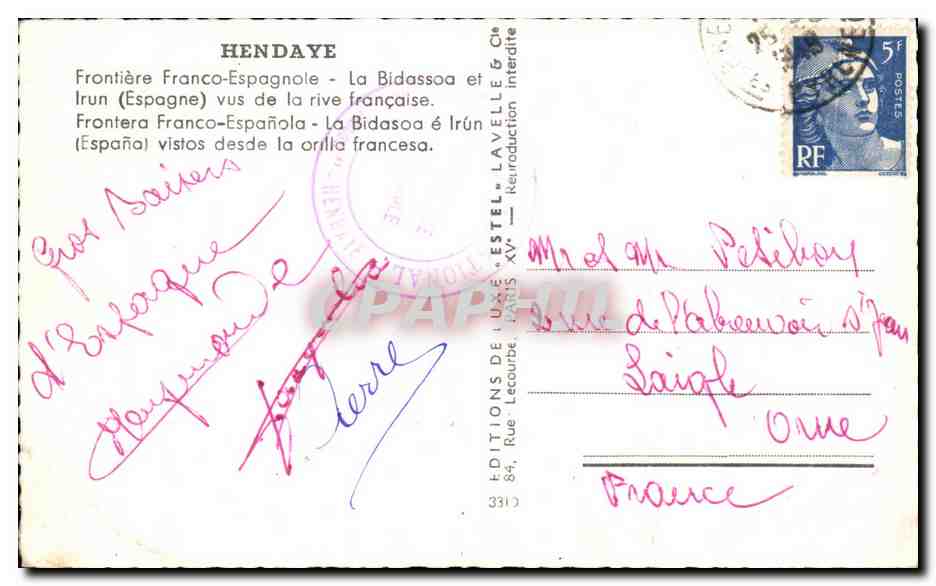 HENDAYE
Frontière Franco-Espagnole - La Bidassoa et
Irun (Espagne) vus de la rive française.
Frontera Franco-Española - La Bidasoa é Irún
(España) vistos desde la orilla francesa.
Gros Baisers
d'Espagne
Raymonde
Pierre
EDITIONS DE LUXE "ESTEL" LAVELLE & Cie
84, Rue Lecourbe, PARIS XVe — Reproduction interdite
3310
5F
POSTES
RF
HENDAYE
CPAPHIL
Mr et Mme
rue de l'abreuvoir St Jean
Laigle
Orne
France